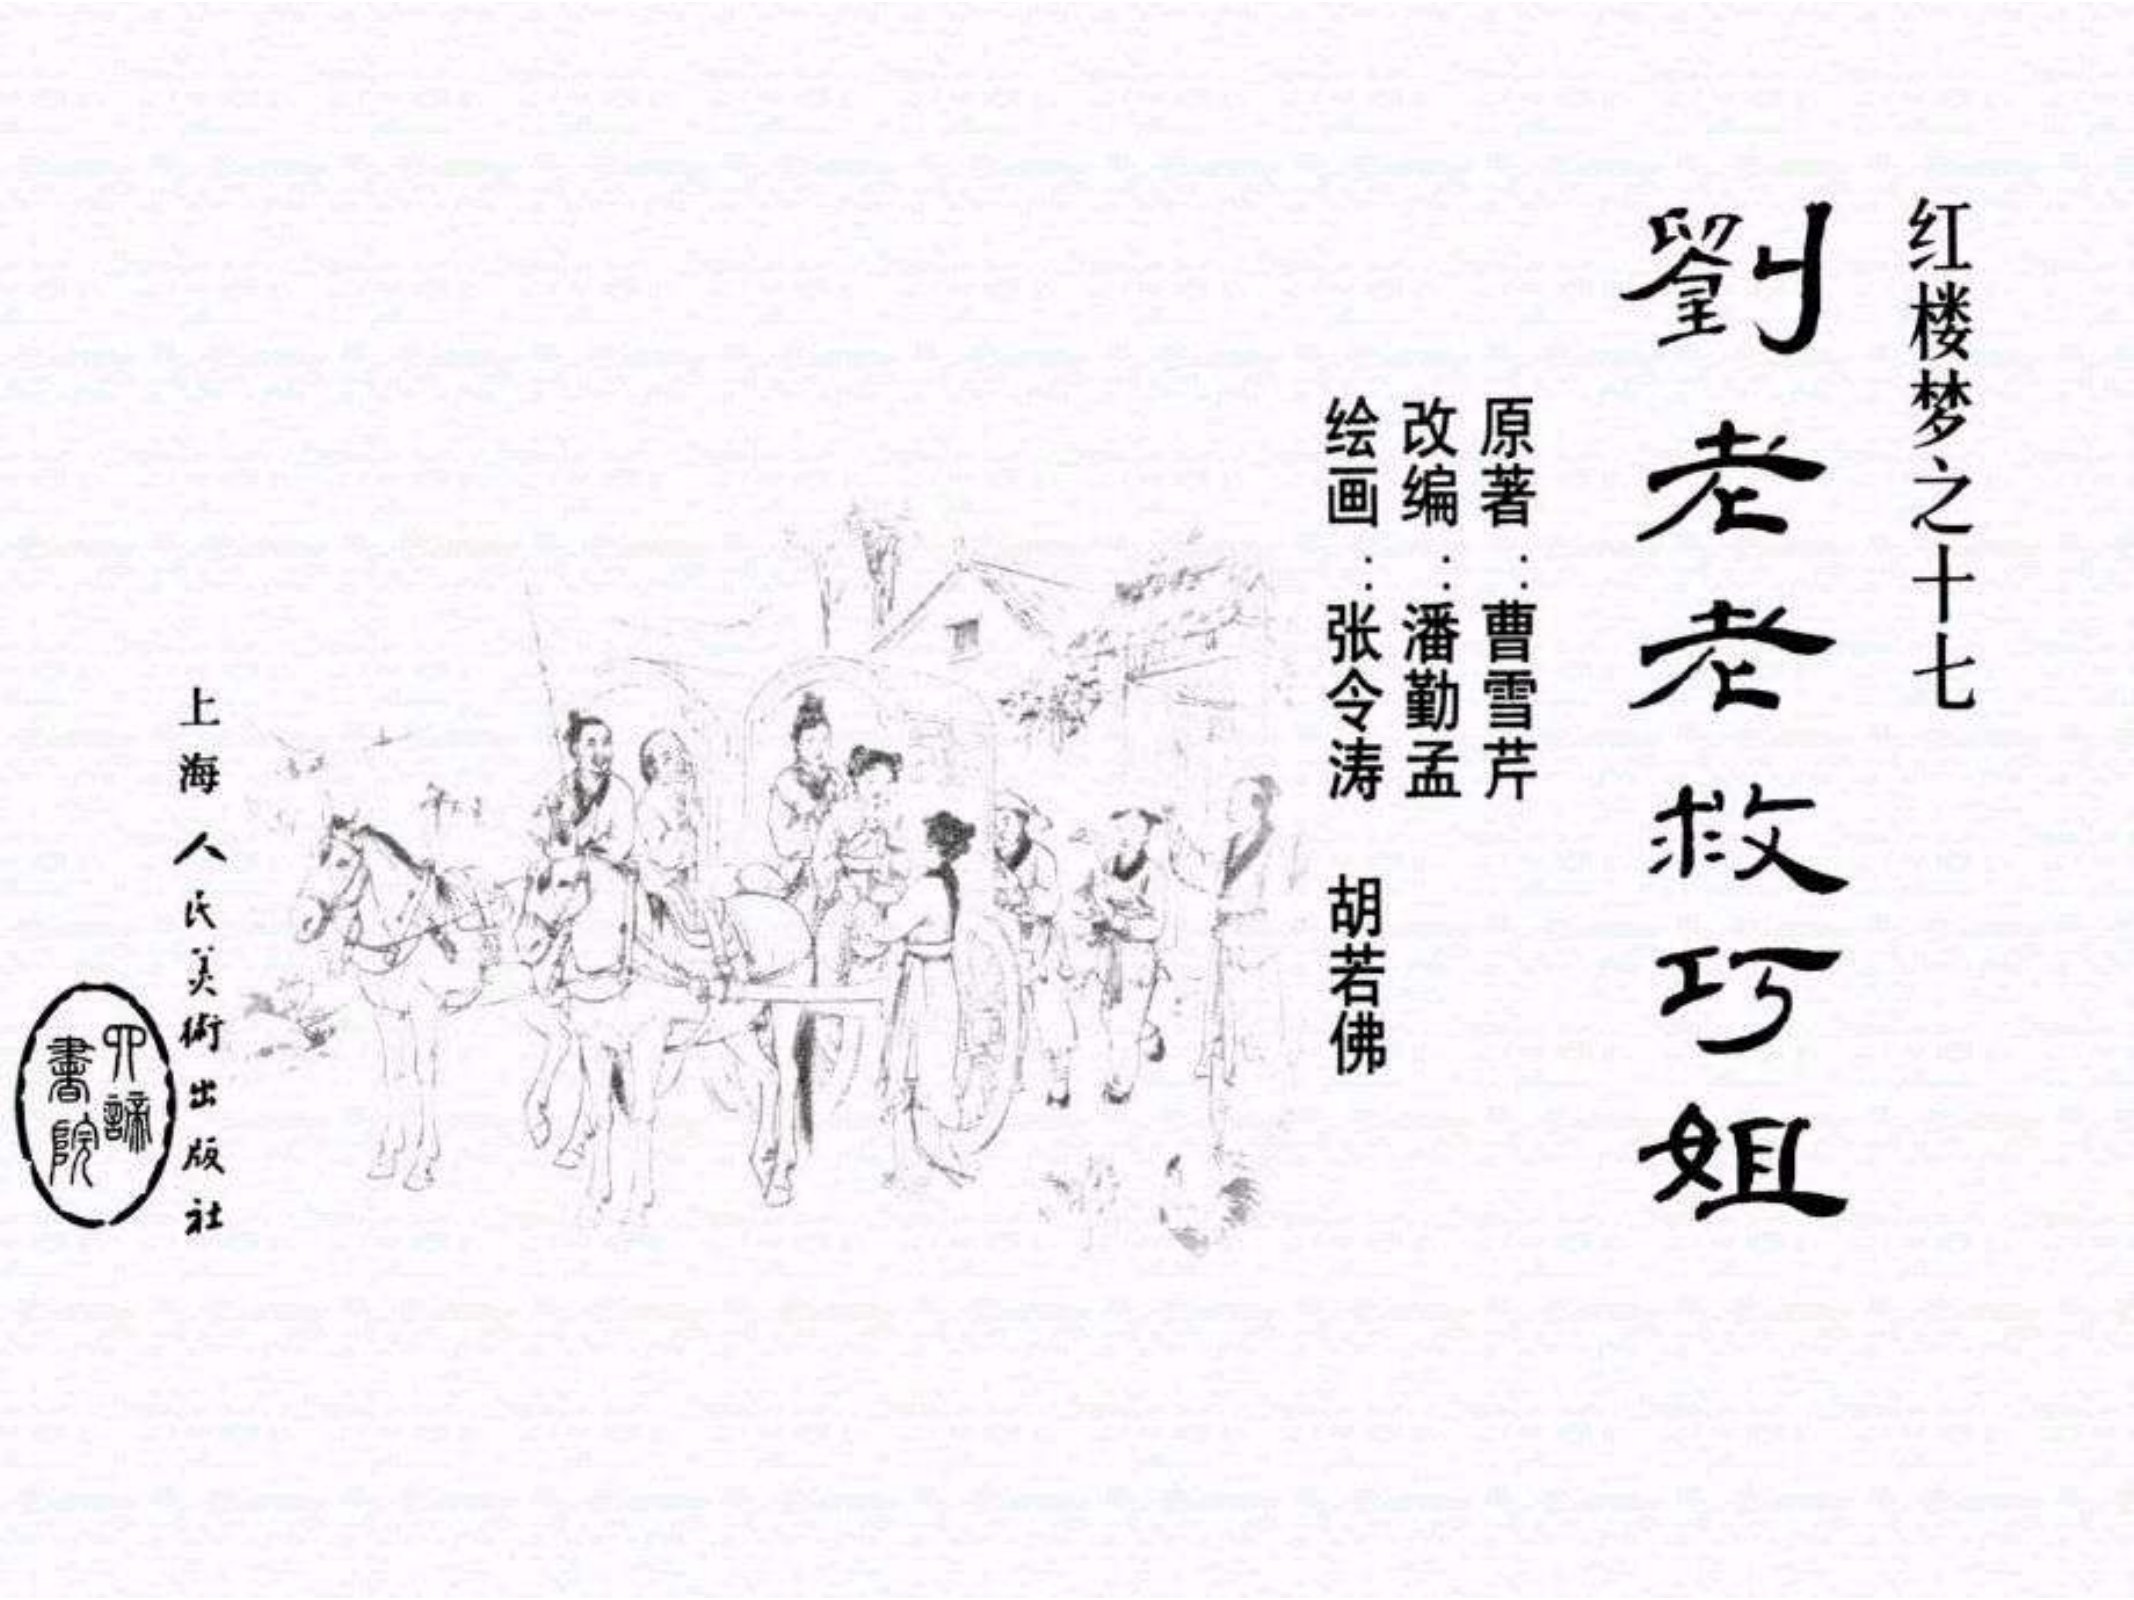 红楼梦之十七
劉老老救巧姐
原著：曹雪芹
改编：潘勤孟
绘画：张令涛 胡若佛
上海人民美術出版社
書院